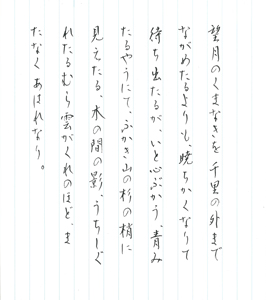 望月のくまなきを千里の外まで
ながめたるよりも、暁ちかくなりて
待ち出たるが、いと心ぶかう、青み
たるやうにて、ふかき山の杉の梢に
見えたる、木の間の影、うちしぐ
れたるむら雲がくれのほど、ま
たなくあはれなり。